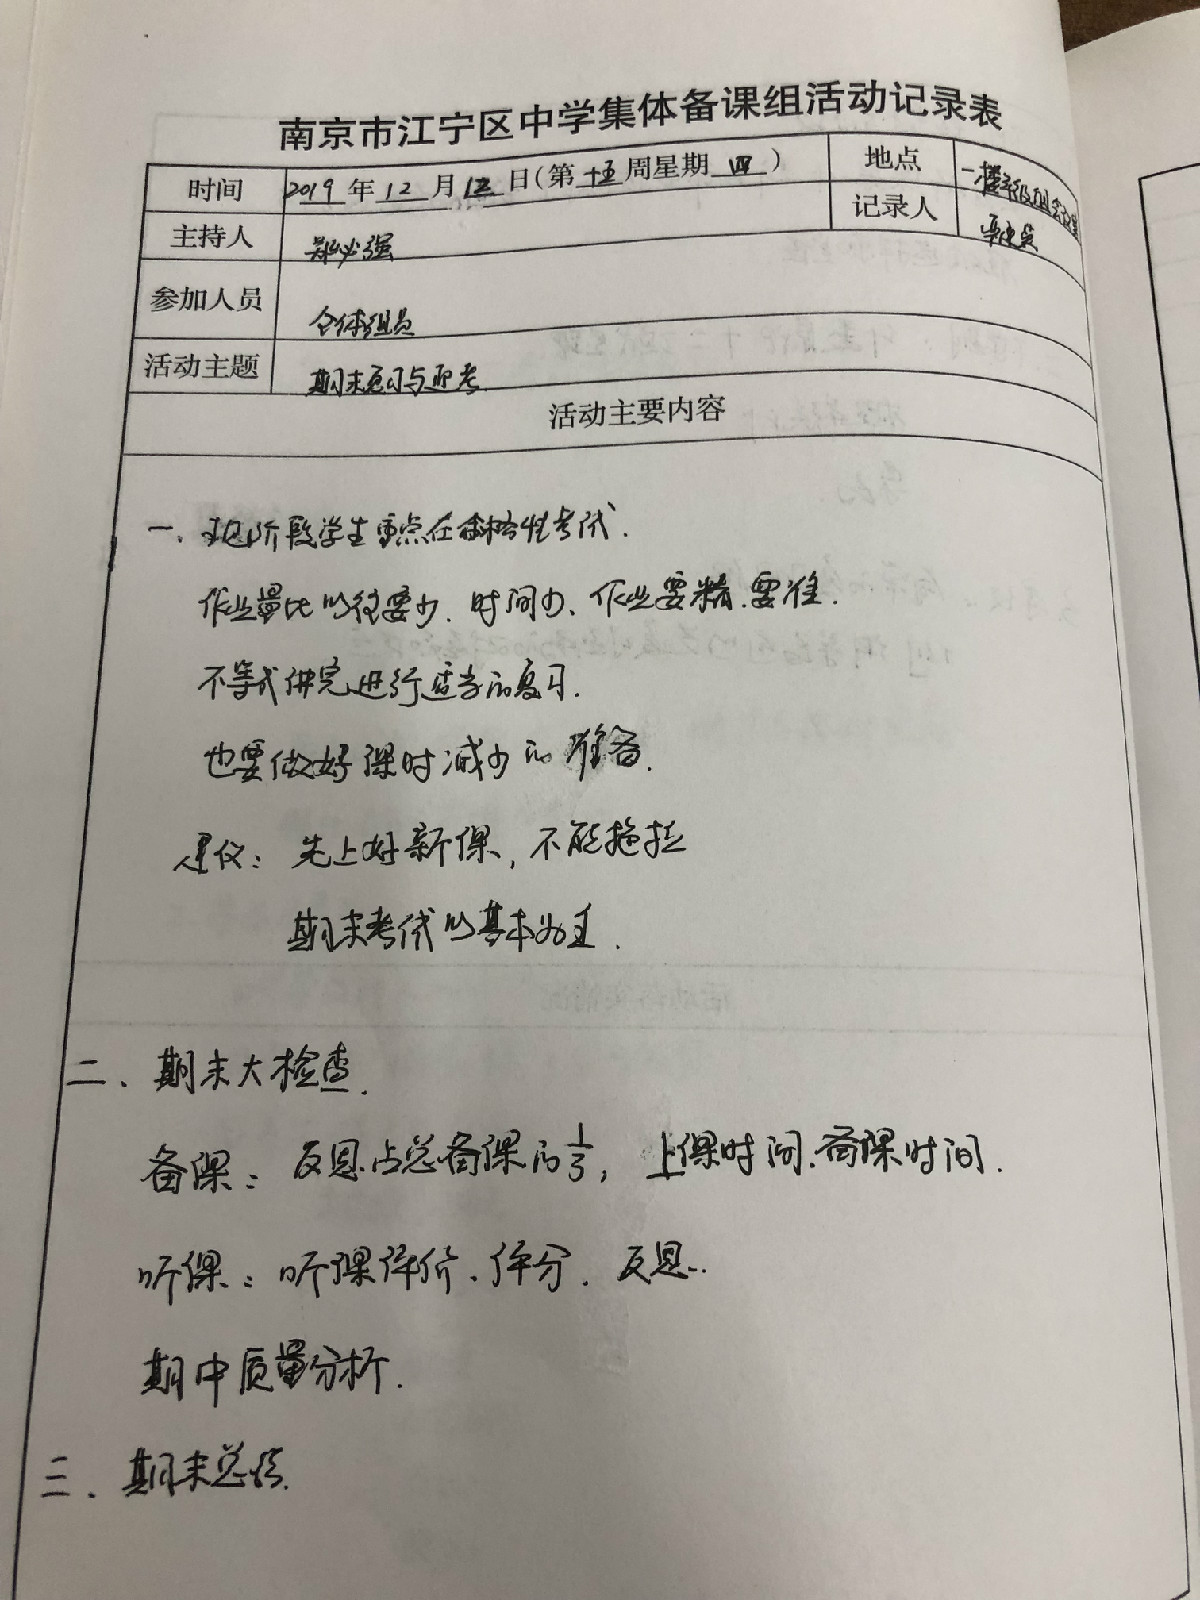 南京市江宁区中学集体备课组活动记录表
时间 2019 年 12 月 12 日(第 十五 周星期 四 ) 地点 一楼年级组会议室
主持人 郑必强 记录人
参加人员 全体组员
活动主题 期末复习与迎考
活动主要内容
一、现阶段学生重点在合格性考试.
作业量比以往要少.时间少、作业要精.要准.
不等式讲完进行适当的复习.
也要做好课时减少的准备.
建议: 先上好新课, 不能拖拉
期末考试以基本为主.
二、期末大检查.
备课: 反思占总备课的1/3, 上课时间.备课时间.
听课: 听课评价、评分. 反思..
期中质量分析.
三、期末总结.